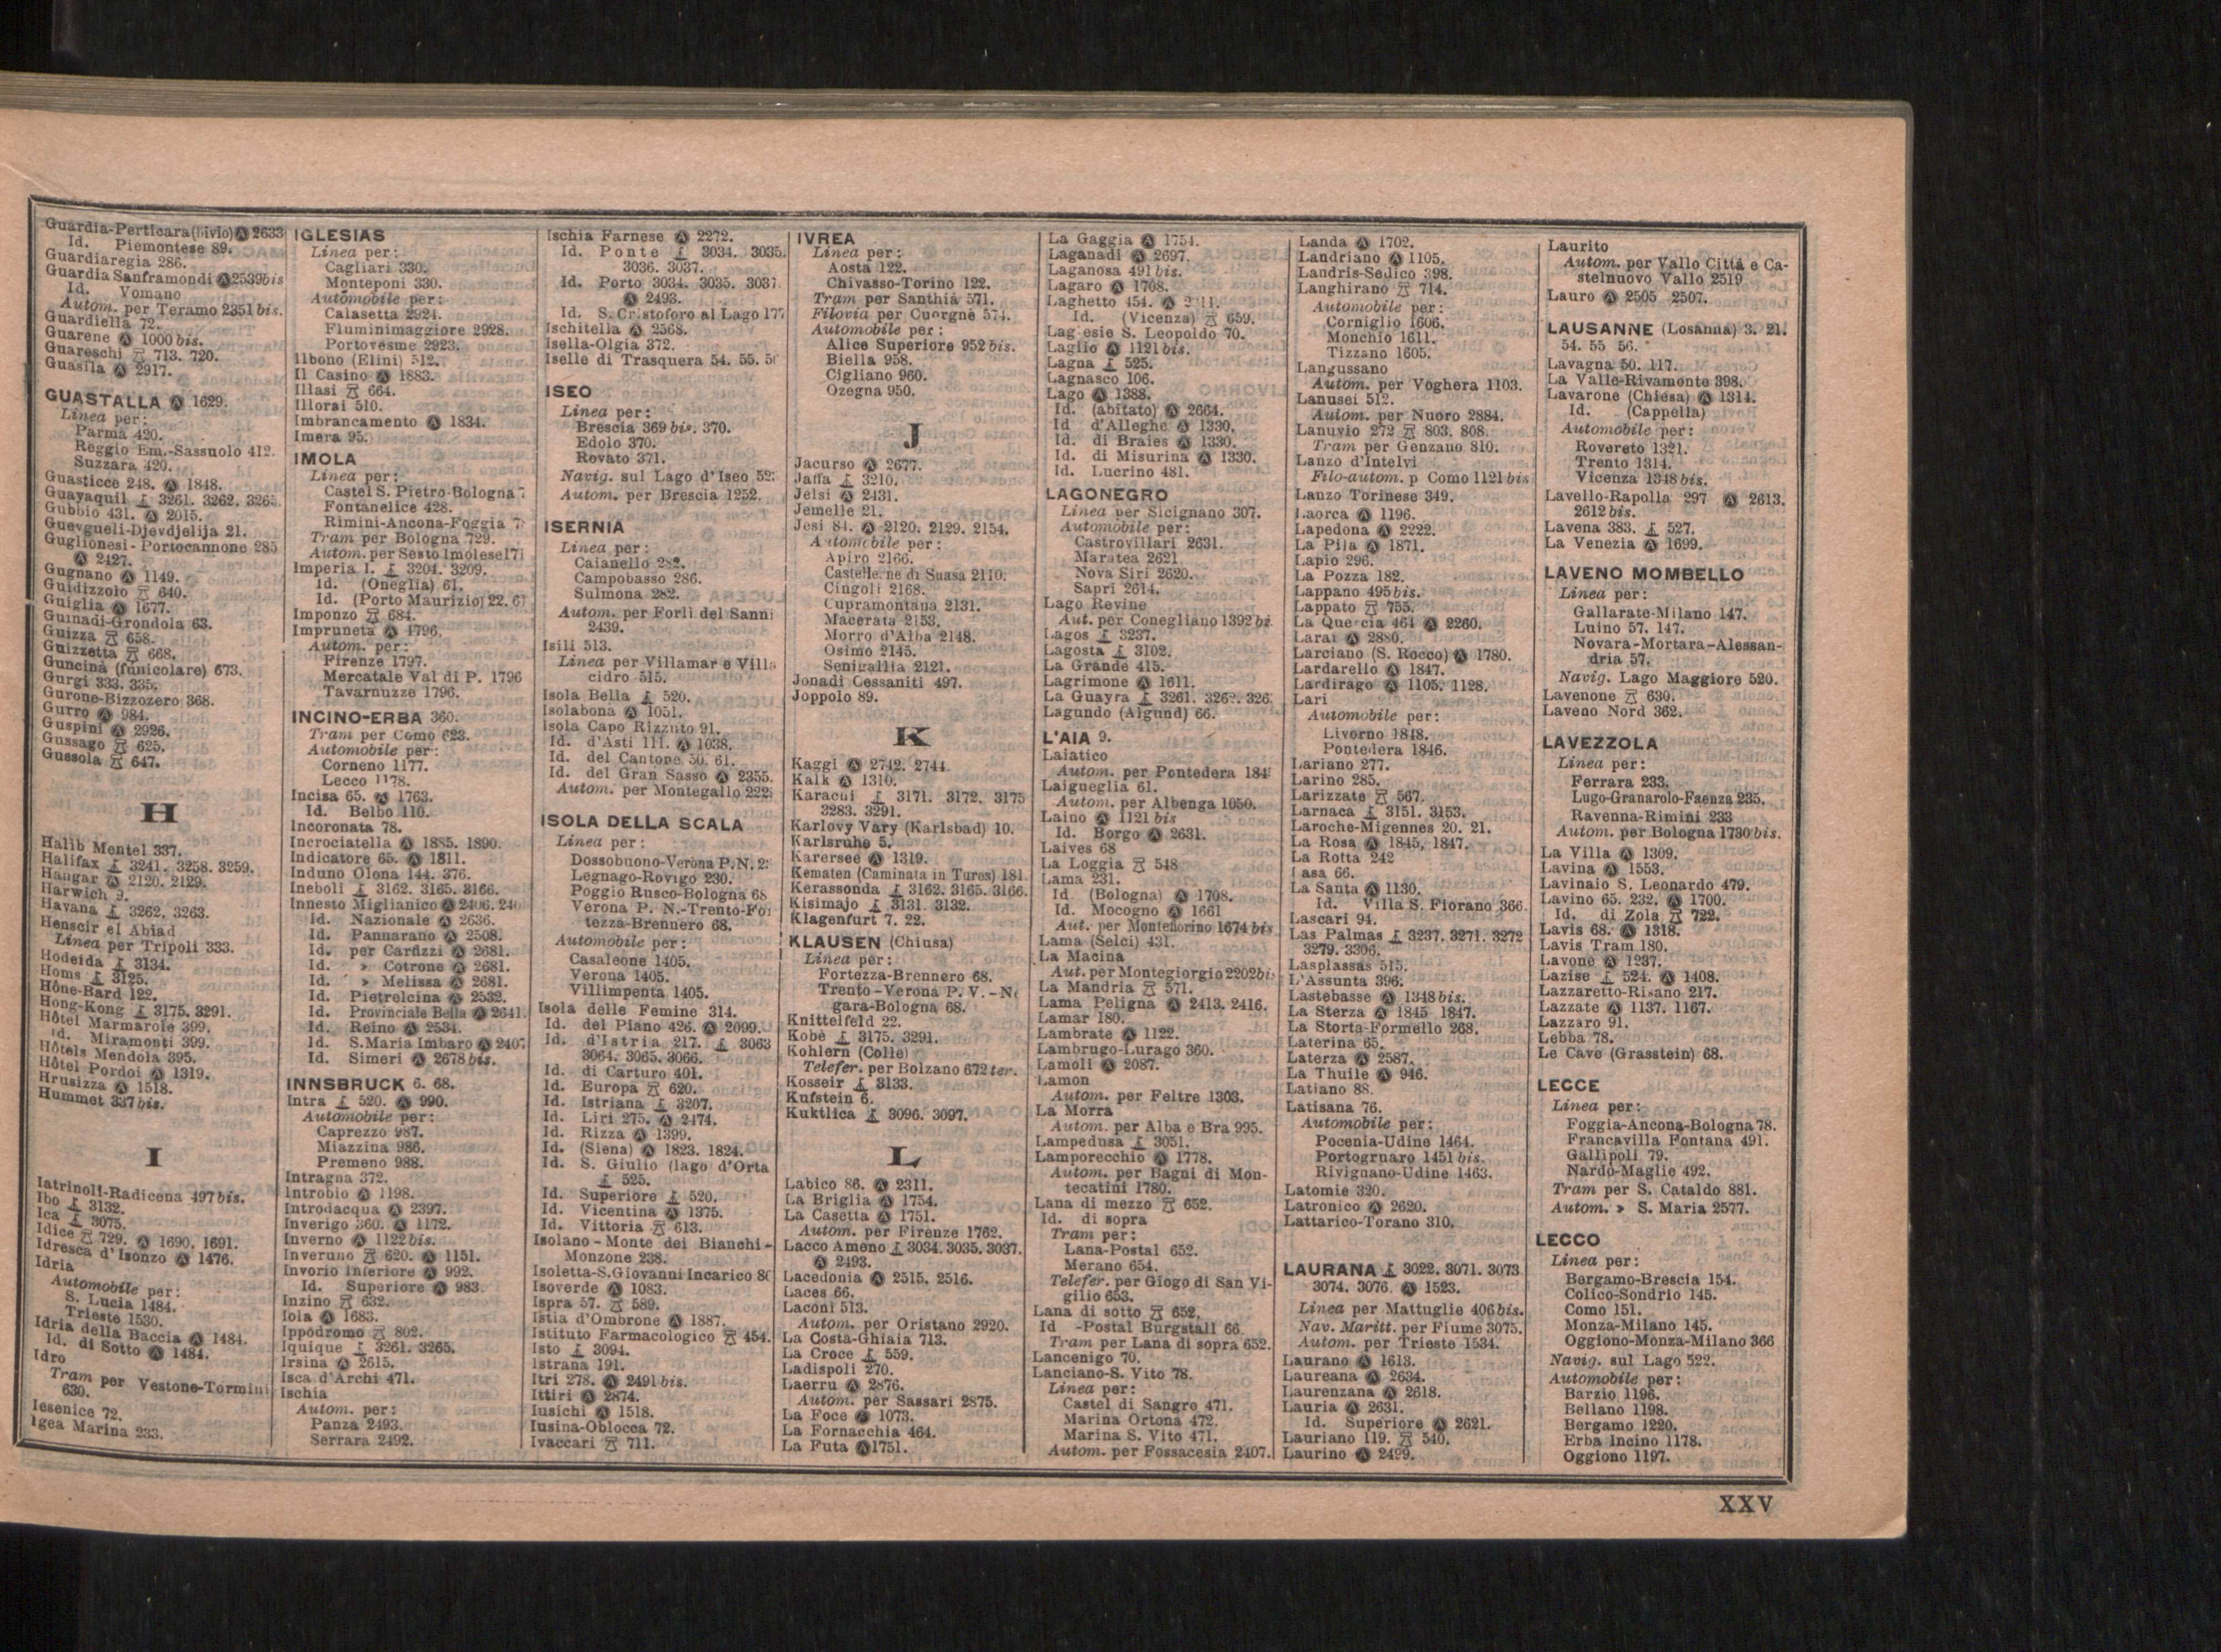 Guardia-Perticara(bivio) Ⓐ 2633
Id. Piemontese 89.
Guardiaregia 286.
Guardia Sanframondi Ⓐ 2539 bis
Id. Vomano
Autom. per Teramo 2351 bis.
Guardiella 72.
Guarene Ⓐ 1000 bis.
Guareschi 713. 720.
Guasila Ⓐ 2917.
GUASTALLA Ⓐ 1629.
Linea per:
Parma 420.
Reggio Em.-Sassuolo 412.
Suzzara 420.
Guasticce 248. Ⓐ 1848.
Guayaquil 3261. 3262. 3263.
Gubbio 431. Ⓐ 2015.
Guevgueli-Djevdjelija 21.
Guglionesi - Portocannone 285
Ⓐ 2427.
Gugnano Ⓐ 1149.
Guidizzolo 640.
Guiglia Ⓐ 1677.
Guinadi-Grondola 63.
Guizza 658.
Guizzetta 668.
Guncina (funicolare) 673.
Gurgi 333. 335.
Gurone-Bizzozero 368.
Gurro Ⓐ 984.
Guspini Ⓐ 2926.
Gussago 625.
Gussola 647.
H
Halib Mentel 337.
Halifax 3241. 3258. 3259.
Hangar Ⓐ 2120. 2129.
Harwich 9.
Havana 3262. 3263.
Henscir el Abiad
Linea per Tripoli 333.
Hodeida 3134.
Homs 3125.
Hône-Bard 122.
Hong-Kong 3175. 3291.
Hôtel Marmarole 399.
Id. Miramonti 399.
Hôtels Mendola 395.
Hôtel Pordoi Ⓐ 1319.
Hrusizza Ⓐ 1518.
Hummet 337 bis.
I
Iatrinoli-Radicena 497 bis.
Ibo 3132.
Ica 3075.
Idice 729. Ⓐ 1690. 1691.
Idresca d'Isonzo Ⓐ 1476.
Idria
Automobile per:
S. Lucia 1484.
Trieste 1530.
Idria della Baccia Ⓐ 1484.
Id. di Sotto Ⓐ 1484.
Idro
Tram per Vestone-Tormini
630.
Iesenice 72.
Igea Marina 233.
IGLESIAS
Linea per:
Cagliari 330.
Monteponi 330.
Automobile per:
Calasetta 2924.
Fluminimaggiore 2928.
Portovesme 2923.
Ilbono (Elini) 512.
Il Casino Ⓐ 1883.
Illasi 664.
Illorai 510.
Imbrancamento Ⓐ 1834.
Imera 95.
IMOLA
Linea per:
Castel S. Pietro-Bologna
Fontanelice 428.
Rimini-Ancona-Foggia
Tram per Bologna 729.
Autom. per Sesto Imolese
Imperia I. 3204. 3209.
Id. (Oneglia) 61.
Id. (Porto Maurizio) 22. 61
Imponzo 684.
Impruneta Ⓐ 1796.
Autom. per:
Firenze 1797.
Mercatale Val di P. 1796
Tavarnuzze 1796.
INCINO-ERBA 360.
Tram per Como 623.
Automobile per:
Corneno 1177.
Lecco 1178.
Incisa 65. Ⓐ 1763.
Id. Belbo 110.
Incoronata 78.
Incrociatella Ⓐ 1885. 1890.
Indicatore 65. Ⓐ 1811.
Induno Olona 144. 376.
Ineboli 3162. 3165. 3166.
Innesto Miglianico Ⓐ 2406.
Id. Nazionale Ⓐ 2636.
Id. Pannarano Ⓐ 2508.
Id. per Carfizzi Ⓐ 2681.
Id. » Cotrone Ⓐ 2681.
Id. » Melissa Ⓐ 2681.
Id. Pietrelcina Ⓐ 2532.
Id. Provinciale Bella Ⓐ 2641.
Id. Reino Ⓐ 2534.
Id. S.Maria Imbaro Ⓐ 2407
Id. Simeri Ⓐ 2678 bis.
INNSBRUCK 6. 68.
Intra 520. Ⓐ 990.
Automobile per:
Caprezzo 987.
Miazzina 986.
Premeno 988.
Intragna 372.
Introbio Ⓐ 1198.
Introdacqua Ⓐ 2397.
Inverigo 360. Ⓐ 1172.
Inverno Ⓐ 1122 bis.
Inveruno 620. Ⓐ 1151.
Invorio Inferiore Ⓐ 992.
Id. Superiore Ⓐ 983.
Inzino 632.
Iola Ⓐ 1683.
Ippodromo 802.
Iquique 3261. 3265.
Irsina Ⓐ 2615.
Isca d'Archi 471.
Ischia
Autom. per:
Panza 2493.
Serrara 2492.
Ischia Farnese Ⓐ 2272.
Id. Ponte 3034. 3035.
3036. 3037.
Id. Porto 3034. 3035. 3037.
Ⓐ 2493.
Id. S. Cristoforo al Lago
Ischitella Ⓐ 2568.
Isella-Olgia 372.
Iselle di Trasquera 54. 55. 56
ISEO
Linea per:
Brescia 369 bis. 370.
Edolo 370.
Rovato 371.
Navig. sul Lago d'Iseo
Autom. per Brescia 1252.
ISERNIA
Linea per:
Caianello 282.
Campobasso 286.
Sulmona 282.
Autom. per Forlì del Sanni
2439.
Isili 513.
Linea per Villamar e Villa
cidro 515.
Isola Bella 520.
Isolabona Ⓐ 1051.
Isola Capo Rizzuto 91.
Id. d'Asti 111. Ⓐ 1038.
Id. del Cantone 50. 61.
Id. del Gran Sasso Ⓐ 2355.
Autom. per Montegallo
ISOLA DELLA SCALA
Linea per:
Dossobuono-Verona P.N.
Legnago-Rovigo 230.
Poggio Rusco-Bologna 68
Verona P. N.-Trento-For
tezza-Brennero 68.
Automobile per:
Casaleone 1405.
Verona 1405.
Villimpenta 1405.
Isola delle Femine 314.
Id. del Piano 426. Ⓐ 2099.
Id. d'Istria 217. 3063
3064. 3065. 3066.
Id. di Carturo 401.
Id. Europa 620.
Id. Istriana 3207.
Id. Liri 275. Ⓐ 2474.
Id. Rizza Ⓐ 1399.
Id. (Siena) Ⓐ 1823. 1824.
Id. S. Giulio (lago d'Orta
525.
Id. Superiore 520.
Id. Vicentina Ⓐ 1375.
Id. Vittoria 613.
Isolano - Monte dei Bianchi -
Monzone 238.
Isoletta-S.Giovanni Incarico
Isoverde Ⓐ 1083.
Ispra 57. 589.
Istia d'Ombrone Ⓐ 1887.
Istituto Farmacologico 454.
Isto 3094.
Istrana 191.
Itri 278. Ⓐ 2491 bis.
Ittiri Ⓐ 2874.
Iusichi Ⓐ 1518.
Iusina-Oblocca 72.
Ivaccari 711.
IVREA
Linea per:
Aosta 122.
Chivasso-Torino 122.
Tram per Santhià 571.
Filovia per Cuorgnè 574.
Automobile per:
Alice Superiore 952 bis.
Biella 958.
Cigliano 960.
Ozegna 950.
J
Jacurso Ⓐ 2677.
Jaffa 3210.
Jelsi Ⓐ 2431.
Jemelle 21.
Jesi 84. Ⓐ 2120. 2129. 2154.
Automobile per:
Apiro 2166.
Castelleone di Suasa 2110.
Cingoli 2168.
Cupramontana 2131.
Macerata 2153.
Morro d'Alba 2148.
Osimo 2145.
Senigallia 2121.
Jonadi Cessaniti 497.
Joppolo 89.
K
Kaggi Ⓐ 2742. 2744.
Kalk Ⓐ 1310.
Karacui 3171. 3172. 3175
3283. 3291.
Karlovy Vary (Karlsbad) 10.
Karlsruhe 5.
Karersee Ⓐ 1319.
Kematen (Caminata in Tures) 181.
Kerassonda 3162. 3165. 3166.
Kisimajo 3131. 3132.
Klagenfurt 7. 22.
KLAUSEN (Chiusa)
Linea per:
Fortezza-Brennero 68.
Trento - Verona P. V. - No
gara-Bologna 68.
Knittelfeld 22.
Kobe 3175. 3291.
Kohlern (Colle)
Telefer. per Bolzano 672 ter.
Kosseir 3133.
Kufstein 6.
Kuktlica 3096. 3097.
L
Labico 86. Ⓐ 2311.
La Briglia Ⓐ 1754.
La Casetta Ⓐ 1751.
Autom. per Firenze 1762.
Lacco Ameno 3034. 3035. 3037.
Ⓐ 2493.
Lacedonia Ⓐ 2515. 2516.
Laces 66.
Laconi 513.
Autom. per Oristano 2920.
La Costa-Ghiaia 713.
La Croce 559.
Ladispoli 270.
Laerru Ⓐ 2876.
Autom. per Sassari 2875.
La Foce Ⓐ 1073.
La Fornacchia 464.
La Futa Ⓐ 1751.
La Gaggia Ⓐ 1754.
Laganadi Ⓐ 2697.
Laganosa 491 bis.
Lagaro Ⓐ 1708.
Laghetto 454. Ⓐ
Id. (Vicenza) 659.
Lagesie S. Leopoldo 70.
Laglio Ⓐ 1121 bis.
Lagna 525.
Lagnasco 106.
Lago Ⓐ 1388.
Id. (abitato) Ⓐ 2664.
Id d'Alleghe Ⓐ 1330.
Id. di Braies Ⓐ 1330.
Id. di Misurina Ⓐ 1330.
Id. Lucrino 481.
LAGONEGRO
Linea per Sicignano 307.
Automobile per:
Castrovillari 2631.
Maratea 2621
Nova Siri 2620.
Sapri 2614.
Lago Revine
Aut. per Conegliano 1392 bis
Lagos 3237.
Lagosta 3102.
La Grande 415.
Lagrimone Ⓐ 1611.
La Guayra 3261. 3262. 326
Lagundo (Algund) 66.
L'AIA 9.
Laiatico
Autom. per Pontedera 184
Laigueglia 61.
Autom. per Albenga 1050.
Laino Ⓐ 1121 bis
Id. Borgo Ⓐ 2631.
Laives 68
La Loggia 548
Lama 231.
Id (Bologna) Ⓐ 1708.
Id. Mocogno Ⓐ 1661
Aut. per Montefiorino 1674 bis
Lama (Selci) 431.
La Macina
Aut. per Montegiorgio 2202 bis
La Mandria 571.
Lama Peligna Ⓐ 2413. 2416.
Lamar 180.
Lambrate Ⓐ 1122.
Lambrugo-Lurago 360.
Lamoli Ⓐ 2087.
Lamon
Autom. per Feltre 1303.
La Morra
Autom. per Alba e Bra 995.
Lampedusa 3051.
Lamporecchio Ⓐ 1778.
Autom. per Bagni di Mon-
tecatini 1780.
Lana di mezzo 652.
Id. di sopra
Tram per:
Lana-Postal 652.
Merano 654.
Telefer. per Giogo di San Vi-
gilio 653.
Lana di sotto 652.
Id -Postal Burgstall 66.
Tram per Lana di sopra 652.
Lancenigo 70.
Lanciano-S. Vito 78.
Linea per:
Castel di Sangro 471.
Marina Ortona 472.
Marina S. Vito 471.
Autom. per Fossacesia 2407.
Landa Ⓐ 1702.
Landriano Ⓐ 1105.
Landris-Sedico 398.
Langhirano 714.
Automobile per:
Corniglio 1606.
Monchio 1611.
Tizzano 1605.
Langussano
Autom. per Voghera 1103.
Lanusei 512.
Autom. per Nuoro 2884.
Lanuvio 272 803. 808.
Tram per Genzano 810.
Lanzo d'Intelvi
Filo-autom. p Como 1121 bis
Lanzo Torinese 349.
Laorca Ⓐ 1196.
Lapedona Ⓐ 2222.
La Pila Ⓐ 1871.
Lapio 296.
La Pozza 182.
Lappano 495 bis.
Lappato 755.
La Quercia 464 Ⓐ 2260.
Larai Ⓐ 2880.
Larciano (S. Rocco) Ⓐ 1780.
Lardarello Ⓐ 1847.
Lardirago Ⓐ 1105. 1128.
Lari
Automobile per:
Livorno 1848.
Pontedera 1846.
Lariano 277.
Larino 285.
Larizzate 567.
Larnaca 3151. 3153.
Laroche-Migennes 20. 21.
La Rosa Ⓐ 1845. 1847.
La Rotta 242
Lasa 66.
La Santa Ⓐ 1130.
Id. Villa S. Fiorano 366.
Lascari 94.
Las Palmas 3237. 3271. 3272
3279. 3306.
Lasplassas 515.
L'Assunta 396.
Lastebasse Ⓐ 1348 bis.
La Sterza Ⓐ 1845 1847.
La Storta-Formello 268.
Laterina 65.
Laterza Ⓐ 2587.
La Thuile Ⓐ 946.
Latiano 88.
Latisana 76.
Automobile per:
Pocenia-Udine 1464.
Portogruaro 1451 bis.
Rivignano-Udine 1463.
Latomie 320.
Latronico Ⓐ 2620.
Lattarico-Torano 310.
LAURANA 3022. 3071. 3073
3074. 3076. Ⓐ 1523.
Linea per Mattuglie 406 bis.
Nav. Maritt. per Fiume 3075.
Autom. per Trieste 1534.
Laurano Ⓐ 1613.
Laureana Ⓐ 2634.
Laurenzana Ⓐ 2618.
Lauria Ⓐ 2631.
Id. Superiore Ⓐ 2621.
Lauriano 119. 540.
Laurino Ⓐ 2499.
Laurito
Autom. per Vallo Città e Ca-
stelnuovo Vallo 2519
Lauro Ⓐ 2505 2507.
LAUSANNE (Losanna) 3. 21.
54. 55 56.
Lavagna 50. 117.
La Valle-Rivamonte 398.
Lavarone (Chiesa) Ⓐ 1314.
Id. (Cappella)
Automobile per:
Rovereto 1321.
Trento 1314.
Vicenza 1348 bis.
Lavello-Rapolla 297 Ⓐ 2613.
2612 bis.
Lavena 383. 527.
La Venezia Ⓐ 1699.
LAVENO MOMBELLO
Linea per:
Gallarate-Milano 147.
Luino 57. 147.
Novara-Mortara-Alessan-
dria 57.
Navig. Lago Maggiore 520.
Lavenone 630.
Laveno Nord 362.
LAVEZZOLA
Linea per:
Ferrara 233.
Lugo-Granarolo-Faenza 235.
Ravenna-Rimini 233
Autom. per Bologna 1730 bis.
La Villa Ⓐ 1309.
Lavina Ⓐ 1553.
Lavinaio S. Leonardo 479.
Lavino 65. 232. Ⓐ 1700.
Id. di Zola 722.
Lavis 68. Ⓐ 1318.
Lavis Tram 180.
Lavone Ⓐ 1237.
Lazise 524. Ⓐ 1408.
Lazzaretto-Risano 217.
Lazzate Ⓐ 1137. 1167.
Lazzaro 91.
Lebba 78.
Le Cave (Grasstein) 68.
LECCE
Linea per:
Foggia-Ancona-Bologna 78.
Francavilla Fontana 491.
Gallipoli 79.
Nardò-Maglie 492.
Tram per S. Cataldo 881.
Autom. » S. Maria 2577.
LECCO
Linea per:
Bergamo-Brescia 154.
Colico-Sondrio 145.
Como 151.
Monza-Milano 145.
Oggiono-Monza-Milano 366
Navig. sul Lago 522.
Automobile per:
Barzio 1196.
Bellano 1198.
Bergamo 1220.
Erba Incino 1178.
Oggiono 1197.
XXV